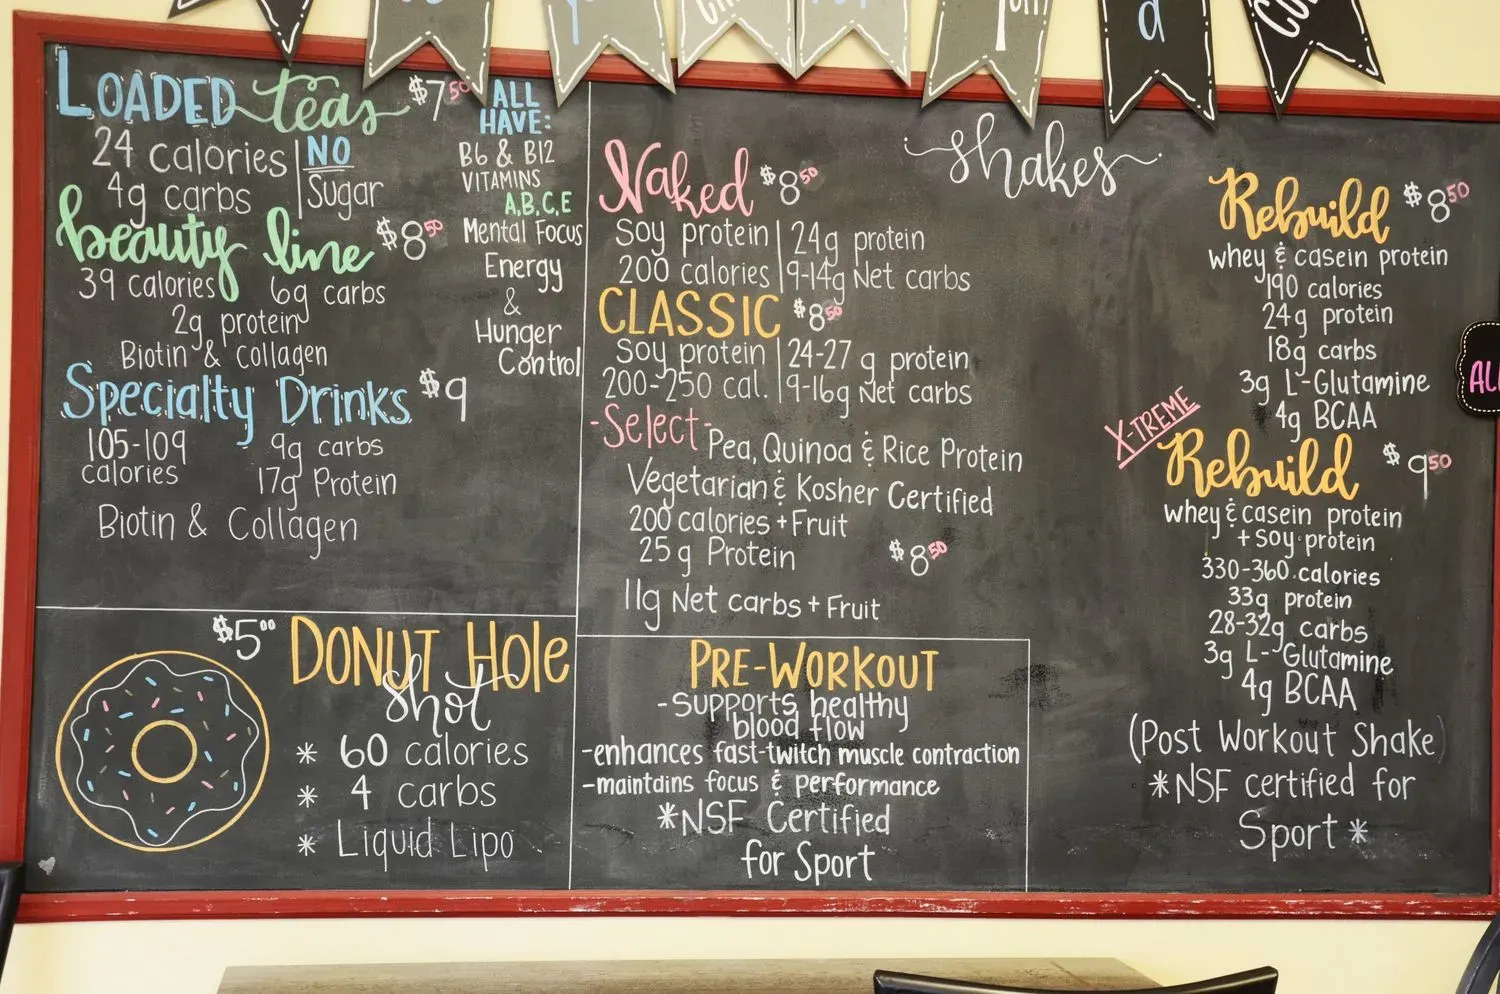 LOADED teas $7.50
24 calories | NO
4g carbs | Sugar
beauty line $8.50
39 calories 6g carbs
2g protein
Biotin & collagen
Specialty Drinks $9
105-109 9g carbs
calories 17g Protein
Biotin & Collagen
ALL
HAVE:
B6 & B12
VITAMINS
A,B,C,E
Mental Focus
Energy
&
Hunger
Control
$5.00 DONUT Hole
shot
* 60 calories
* 4 carbs
* Liquid Lipo
shakes
Naked $8.50
Soy protein | 24g protein
200 calories | 9-14g Net carbs
CLASSIC $8.50
Soy protein | 24-27 g protein
200-250 cal. | 9-16g Net carbs
-Select- Pea, Quinoa & Rice Protein
Vegetarian & Kosher Certified
200 calories + Fruit
25 g Protein $8.50
11g Net carbs + Fruit
PRE-WORKOUT
-supports healthy
blood flow
-enhances fast-twitch muscle contraction
-maintains focus & performance
*NSF Certified
for Sport
Rebuild $8.50
whey & casein protein
190 calories
24g protein
18g carbs
3g L-Glutamine
4g BCAA
X-TREME
Rebuild $9.50
whey & casein protein
+ soy protein
330-360 calories
33g protein
28-32g carbs
3g L-Glutamine
4g BCAA
(Post Workout Shake)
*NSF certified for
Sport*